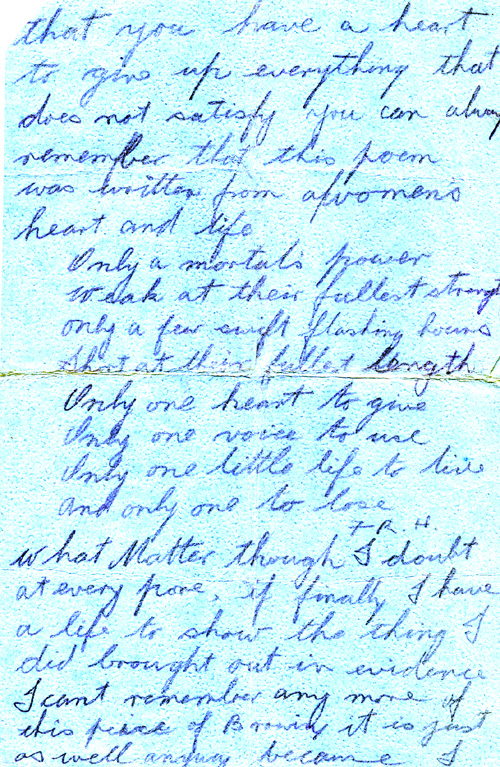 that you have a heart
to give up everything that
does not satisfy you can alway
remember that this poem
was written from a womens
heart and life
Only a mortals power
Weak at their fullest strengt
only a few swift flashing hours
Short at their fullest length
Only one heart to give
Only one voice to use
Only one little life to live
and only one to lose
F. R. H.
What Matter though I doubt
at every pore, if finally I have
a life to show the thing I
did brought out in evidence
I cant remember any more of
this peice of Browning it is just
as well anyway because I